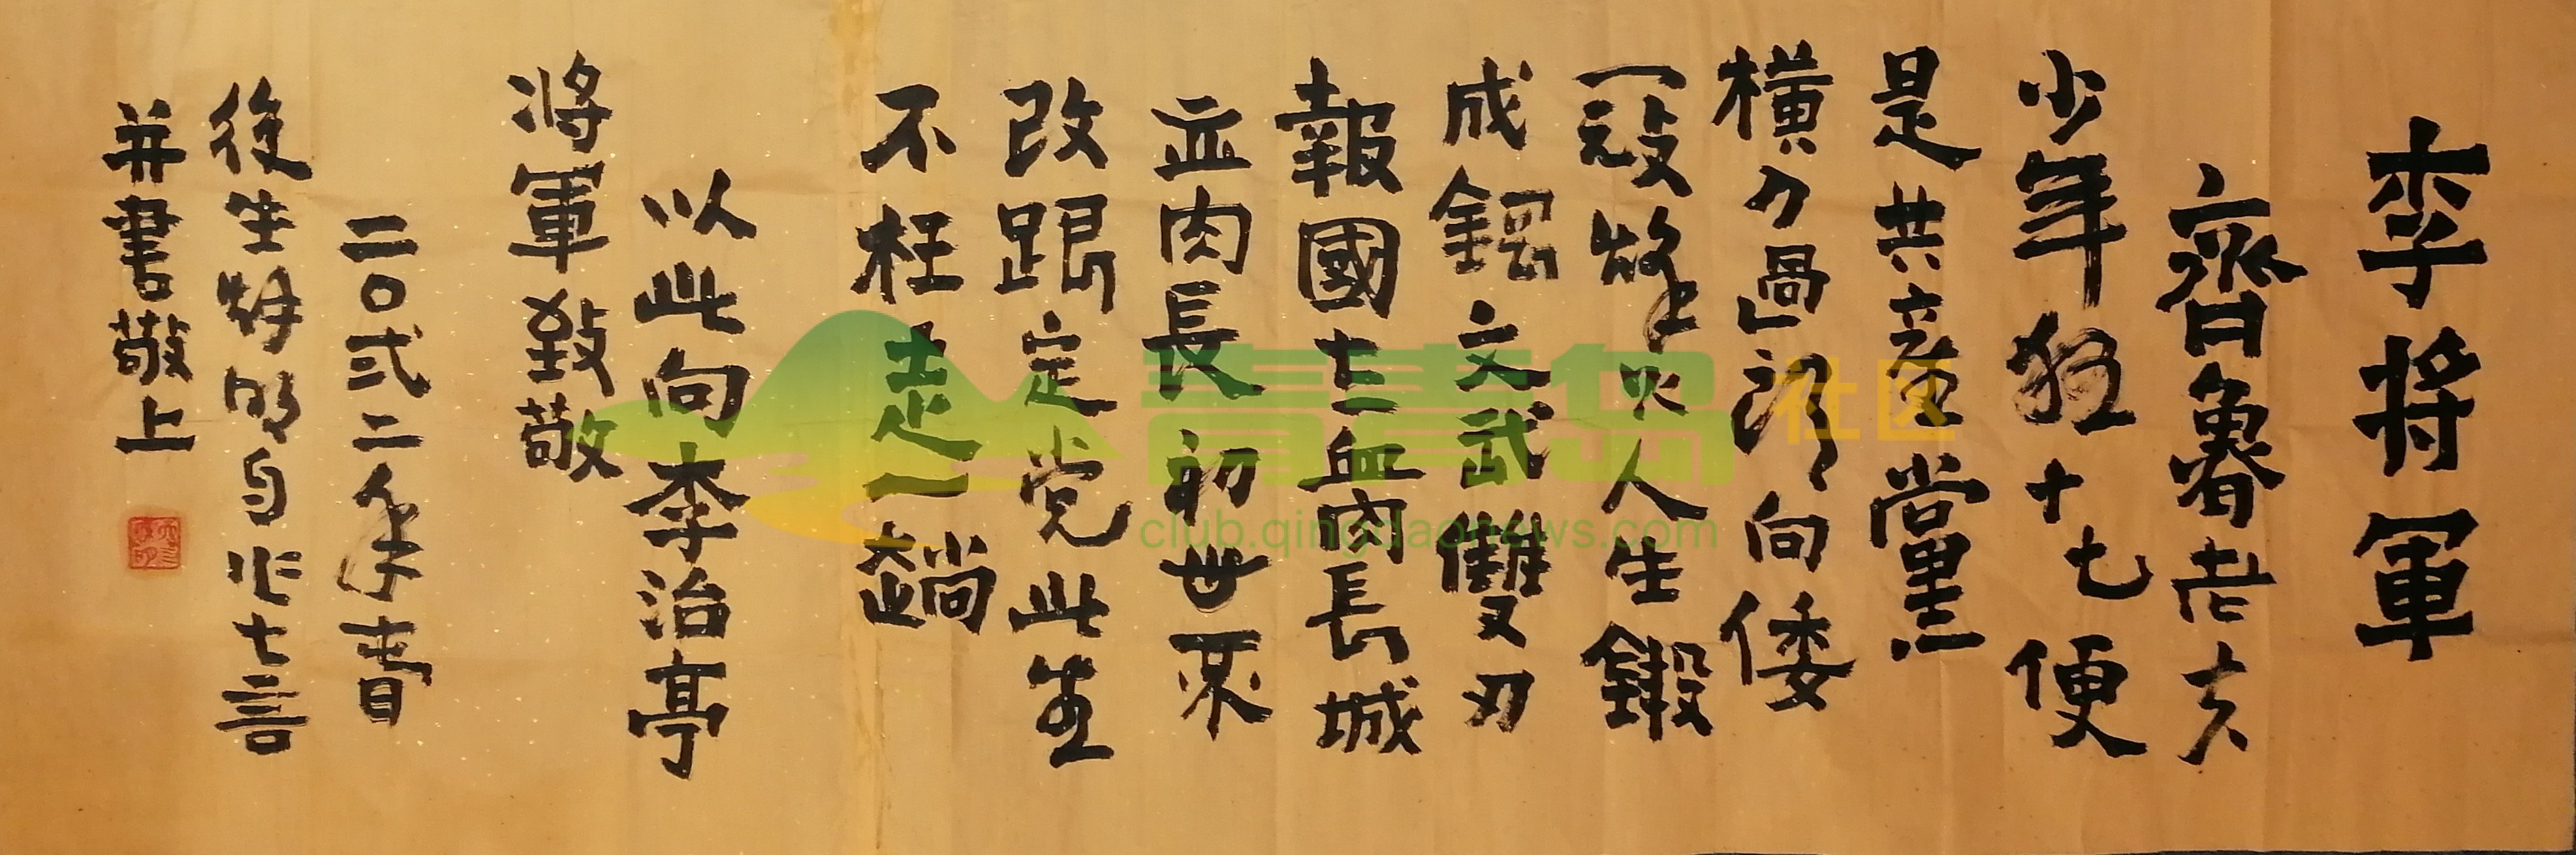 李将軍
齊魯老夫
少年狂十七便
是共産黨
橫刀向倭
寇烽火人生鍛
成鋼文武雙刃
報國士血肉長城
血肉長初不
改跟定党此生
不枉走一趟
以此向李治亭
將軍致敬
二〇弍二年春
後生明自作七言
并書敬上
青青岛社区
club.qingdaonews.com